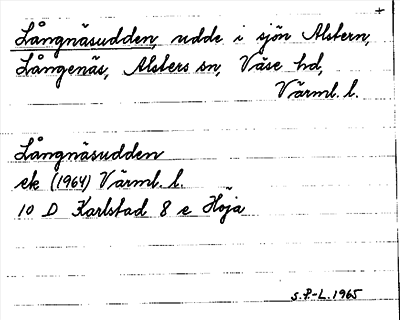 +
Långnäsudden, udde i sjön Alstern,
Långenäs, Alsters sn, Väse hd,
Värml. l.
Långnäsudden
ek (1964) Värml. l.
10 D Karlstad 8 e Höja
S.P-L. 1965